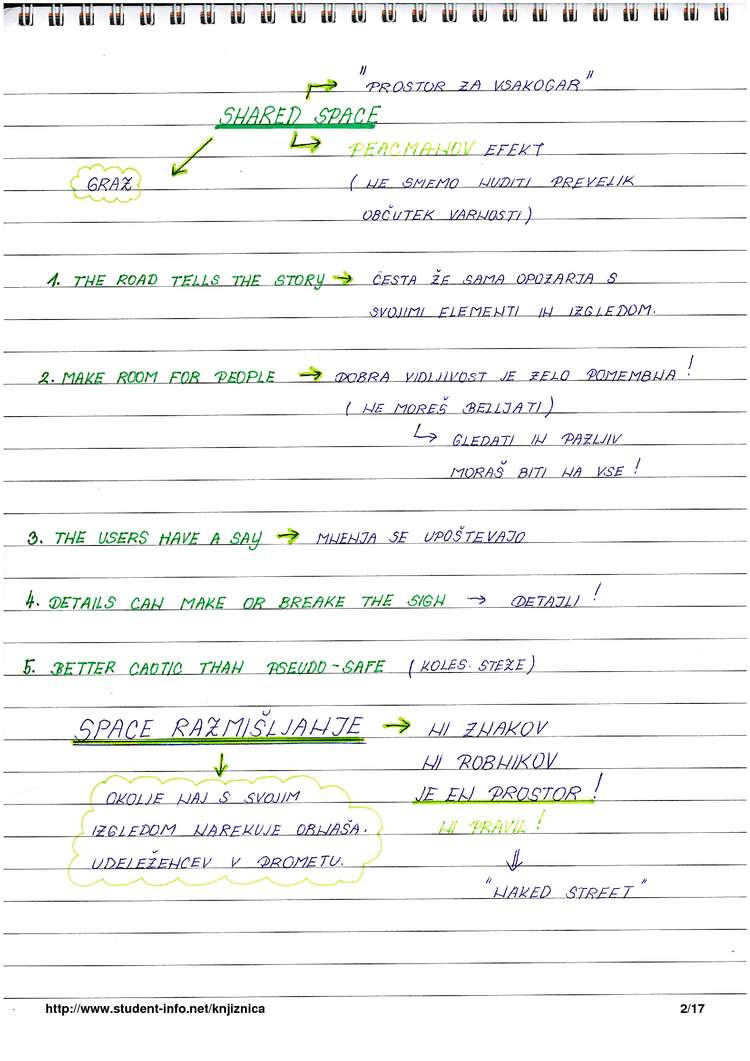 "PROSTOR ZA VSAKOGAR"
SHARED SPACE
PEACMANOV EFEKT
GRAZ
(NE SMEMO NUDITI PREVELIK
OBČUTEK VARNOSTI)
1. THE ROAD TELLS THE STORY → CESTA ŽE SAMA OPOZARJA S
SVOJIMI ELEMENTI IN IZGLEDOM.
2. MAKE ROOM FOR PEOPLE → DOBRA VIDLJIVOST JE ZELO POMEMBNA!
(NE MOREŠ BELLJATI)
↳ GLEDATI IN PAZLJIV
MORAŠ BITI NA VSE!
3. THE USERS HAVE A SAY → MNENJA SE UPOŠTEVAJO
4. DETAILS CAN MAKE OR BREAKE THE SIGN → DETAJLI!
5. BETTER CAOTIC THAN PSEUDO-SAFE (KOLES. STEZE)
SPACE RAZMIŠLJANJE → NI ZNAKOV
NI ROBNIKOV
OKOLJE NAJ S SVOJIM JE EN PROSTOR!
IZGLEDOM NAREKUJE OBNAŠA. NI PRAVIL!
UDELEŽENCEV V PROMETU.
"NAKED STREET"
http://www.student-info.net/knjiznica 2/17